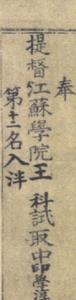 奉
提督江蘇學院王 科試取中卽學
第十二名入泮